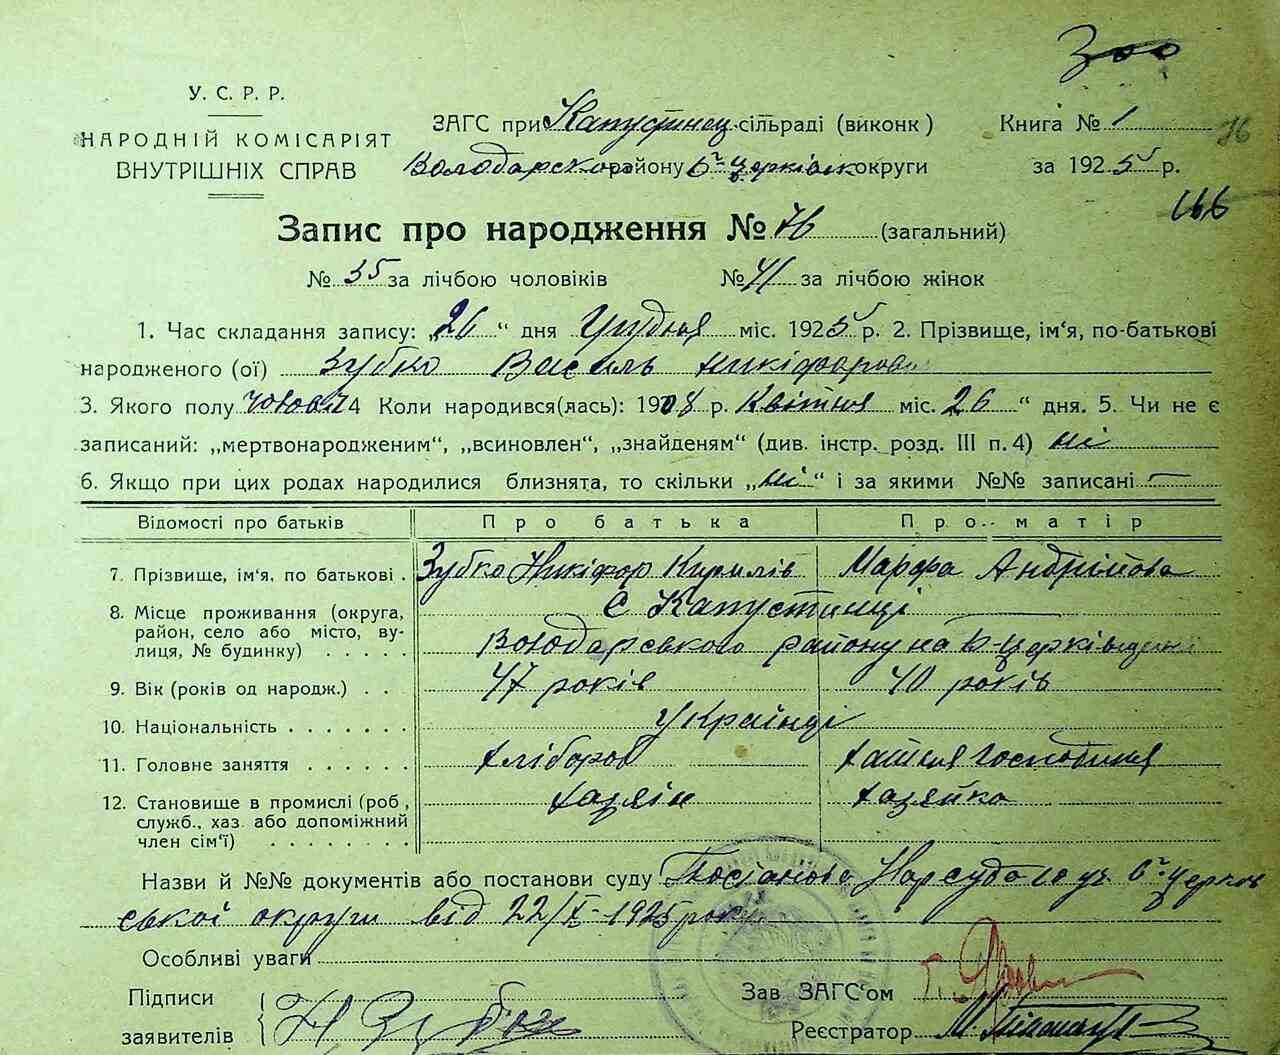 300
У. С. Р. Р.
НАРОДНІЙ КОМІСАРІЯТ
ВНУТРІШНІХ СПРАВ
ЗАГС при Капустинец. сільраді (виконк)
Володарского району Б-церківск округи
Книга № 1
за 1925 р.
76
166
Запис про народження № 76 (загальний)
№ 35 за лічбою чоловіків № 41 за лічбою жінок
1. Час складання запису: „26“ дня Грудня міс. 1925 р. 2. Прізвище, ім'я, по-батькові
народженого (ої) Зубко Василь Никіфоров
3. Якого полу чоловіч 4 Коли народився(лась): 1908 р. Квітня міс. 26 “ дня. 5. Чи не є
записаний: „мертвонародженим“, „всиновлен“, „знайденям“ (див. інстр. розд. III п. 4) ні
6. Якщо при цих родах народилися близнята, то скільки „ні“ і за якими №№ записані —
Відомості про батьків Про батька Про матір
7. Прізвище, ім'я, по батькові . Зубко Никіфор Кирилів Марфа Андріїова
8. Місце проживання (округа, С Капустинці
район, село або місто, ву- Володарського району на Б-церківщені
лиця, № будинку) . . . . .
9. Вік (років од народж.) . . 47 років 40 років
10. Національність . . . . . . . Українці
11. Головне заняття . . . . . . хлібороб хатня господиня
12. Становище в промислі (роб., хазяін хазяйка
служб., хаз. або допоміжний
член сім'ї) . . . . . . . .
Назви й №№ документів або постанови суду Постанова Нарсуда 10 уч. Б-церків
ської округи від 22/X-1925 року
Особливі уваги
Підписи
заявителів Н Зубко
Зав ЗАГС'ом
Реєстратор